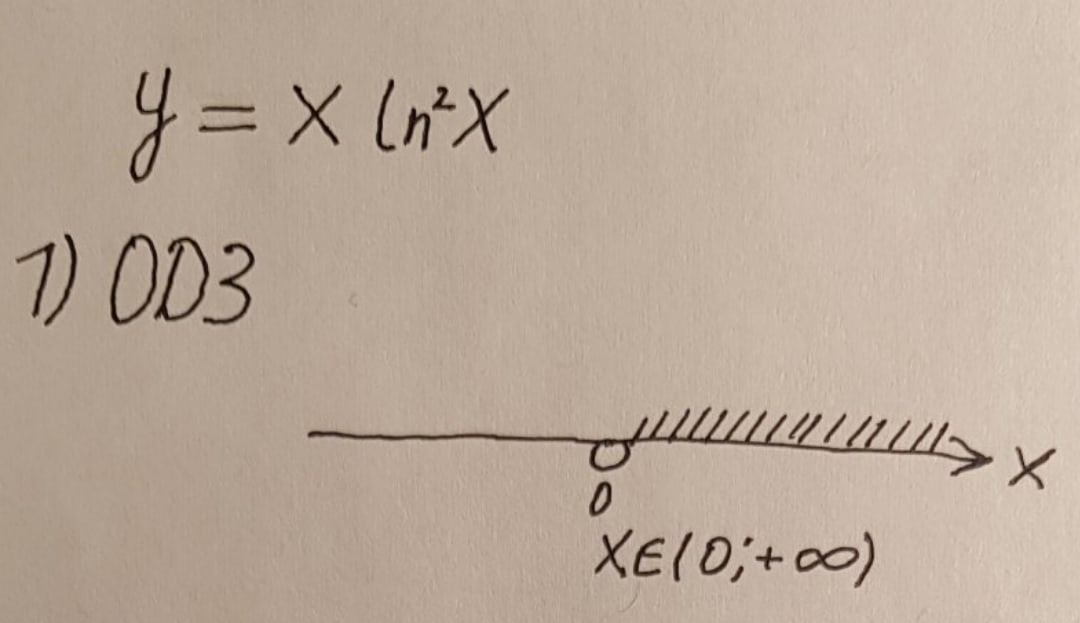 y = x ln²x
1) ОДЗ
x
0
x∈(0;+∞)